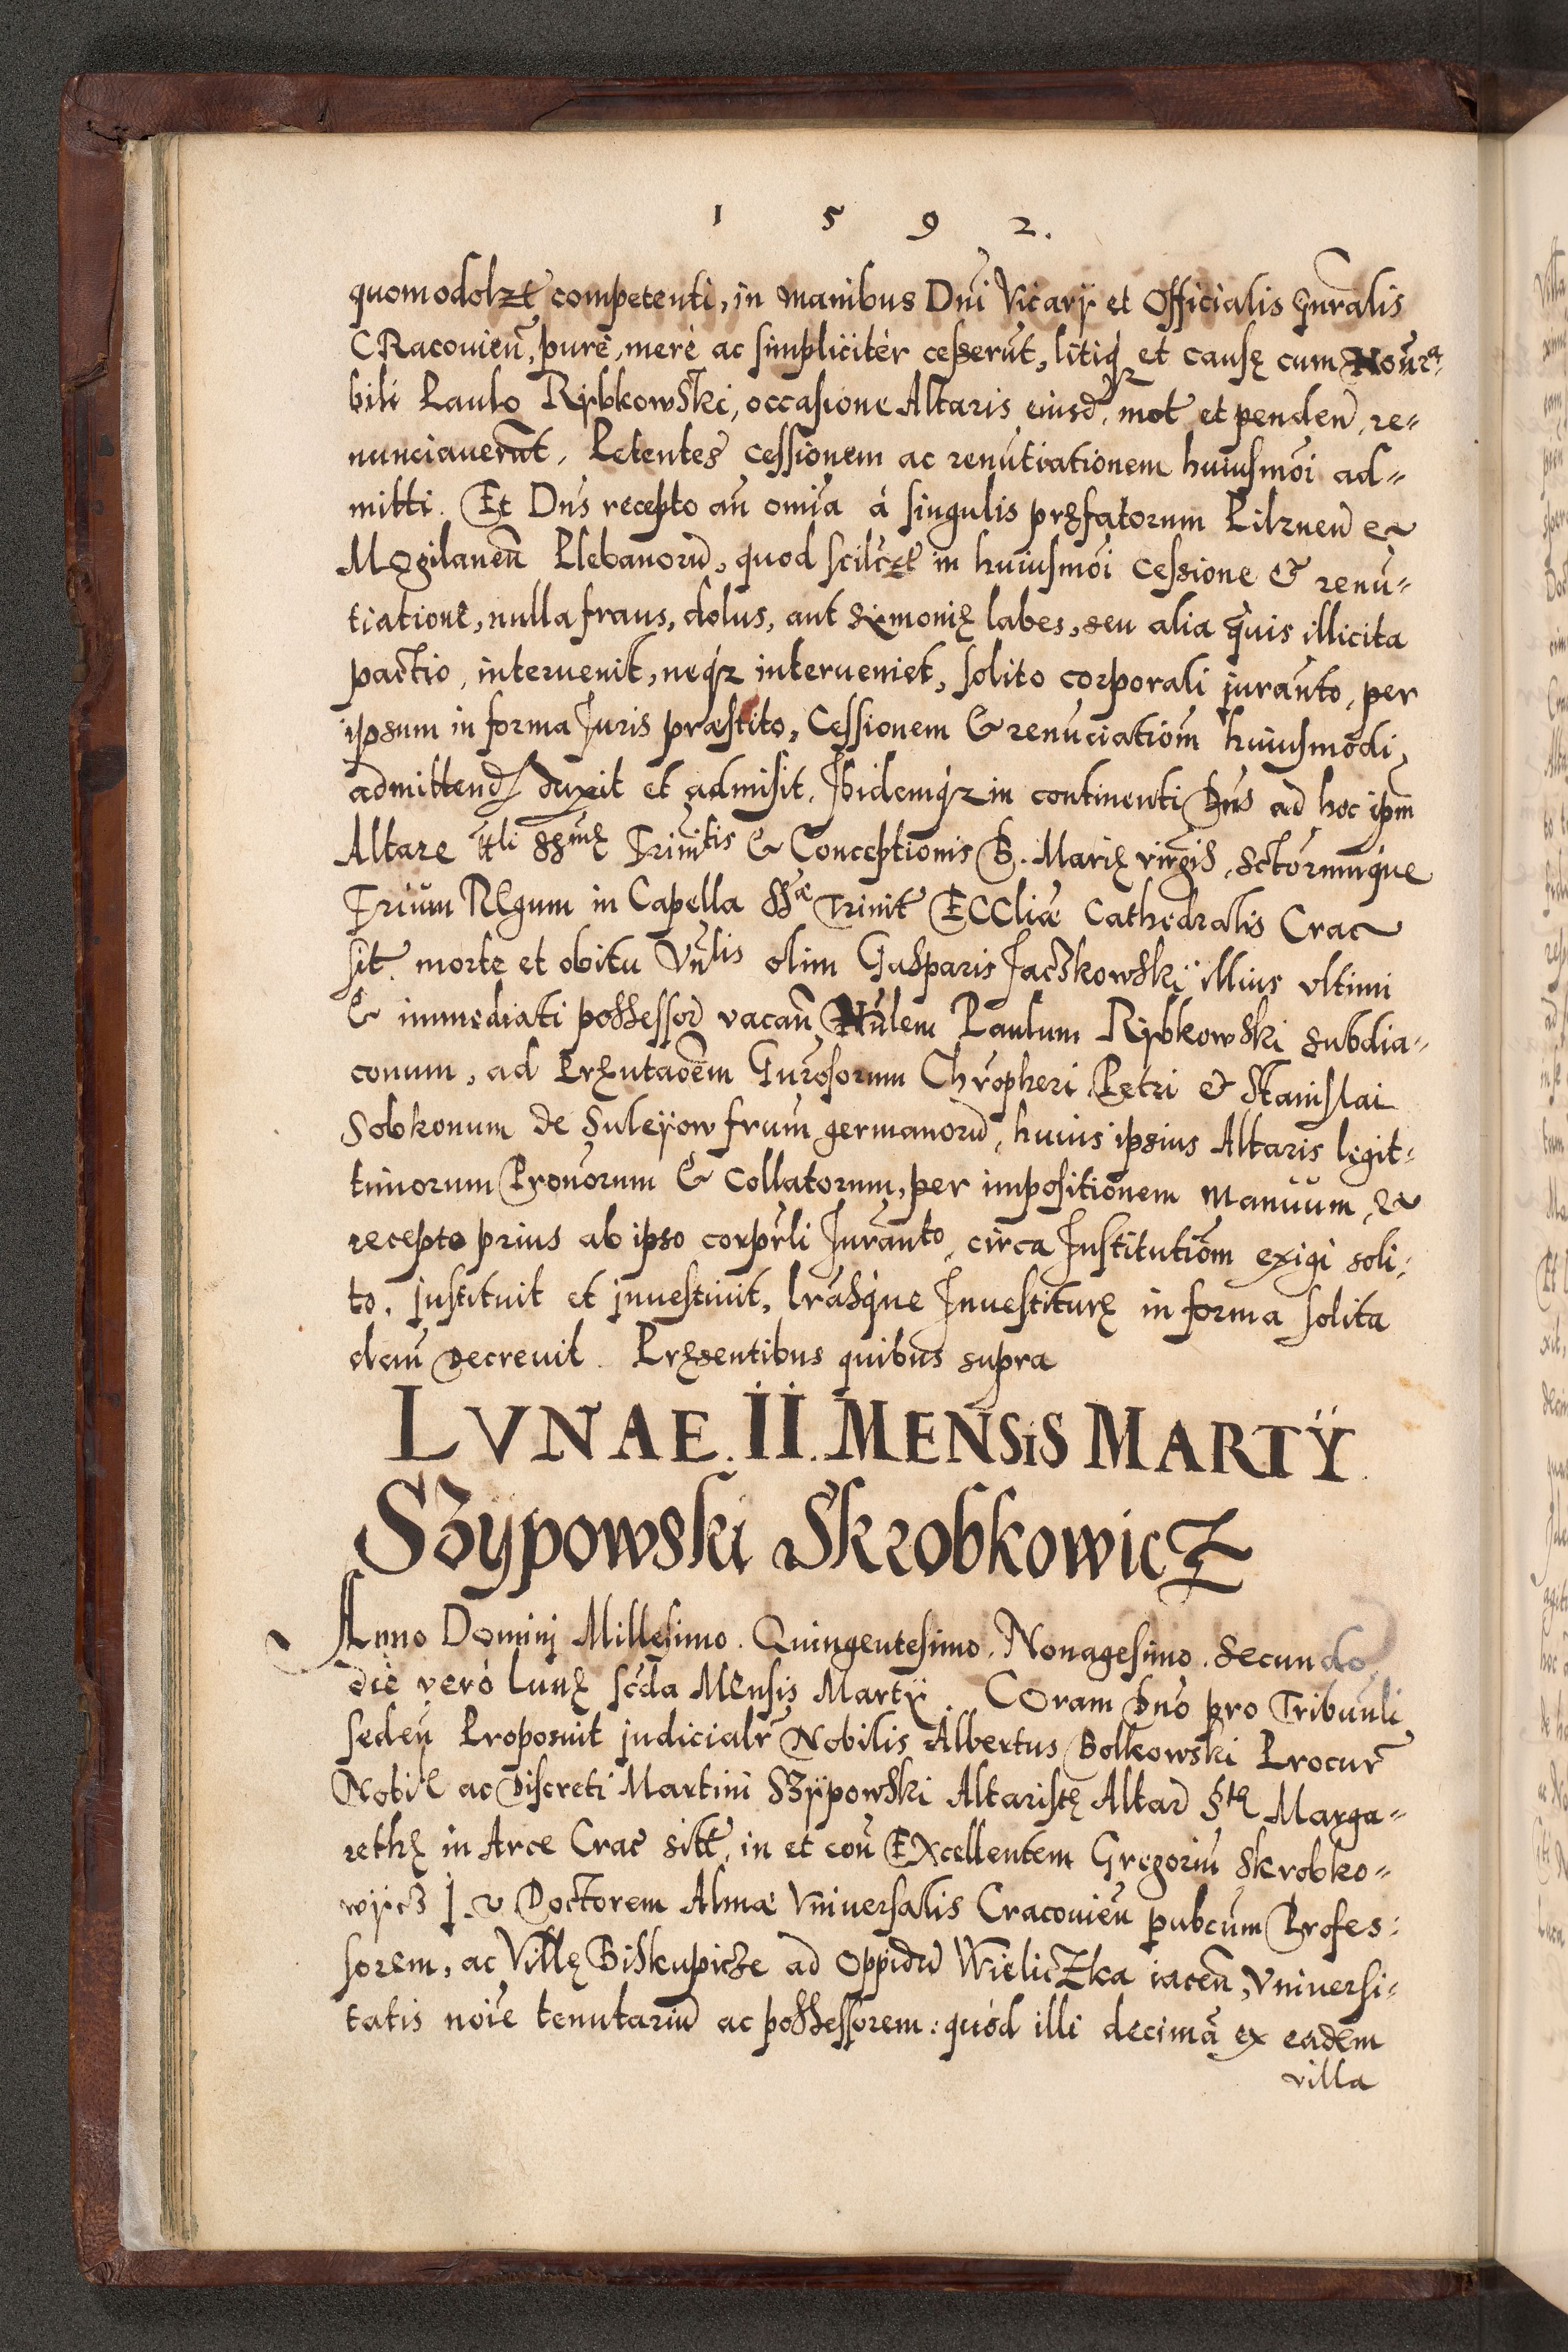 1 5 9 2.
quomodolzt competenti, in manibus Dni Vicarÿ et Officialis gnralis
CRacovien, purè, merè ac simplicitèr cesserut, litiqz et causę cum
bili Paulo Rÿbkowski, occasione Altaris eiusd, mot et penden, re-
nunciaverūt. Petentes cessionem ac renūtiationem huiusmōi ad-
mitti. Et Dns recepto an omia à singulis pręfatorum Pilznen et
Mogilanen Plebanorū, quod scilczt in huiusmōi cessione & renū-
tiatione, nulla fraus, dolus, aut sÿmonię labes, seu alia quis illicita
pactio, intervenit, neqz interveniet, solito corporali jurānto, per
ipsum in forma Juris præstito, Cessionem & renūciatiōm huiusmodi,
admittend duxit et admisit. Ibidemqz in continenti Dns ad hoc ipm
Altare ttli SSmę Trinitis & Conceptionis B. Marię virgis, Sctorumque
Trium REgum in Capella SSæ Trinit ECCliæ Cathedralis Crac
sit morte et obitu Vnlis olim Gasparis Jaczkowskÿ illius vltimi
& immediati possessor vacan Paulum Rÿbkowski subdia-
conum, ad Pręntaōem Gnrosorum Chrōpheri Petri & Stanislai
Sobkonum de Suleÿow frum germanorū, huius ipsius Altaris legit-
timorum Pronorum & Collatorum, per impositionem manuum, et
recepto prius ab ipso corprli Jurānto, circa Institutiōm exigi soli-
to, jnstituit et jnvestivit, lrasque Investiturę in forma solita
dan decrevit. Pręsentibus quibus supra
LVNAE. II. MENSiS MARTŸ.
SZÿpowski SkrobkowicZ
Anno Dominj Millesimo. Quingentesimo. Nonagesimo. Secundo
die verò lunę scda MEnsis Martÿ. COram Dno pro Tribunli
seden Proposuit judicialr Nobilis Albertus Bolkowski Procur
Nobil ac Discreti Martini SZÿpowski Altaristę Altar Stę Marga-
rethę in Arce Crac sitt, in et con EXcellentem Gregoriu Skrobko-
wÿcz J. V Doctorem Almæ Vniversalis Cracovien pubcum Profes-
sorem, ac Villę Biskupicze ad Oppidū WielicZka iacen, Vniversi-
tatis noie tenutariū ac possessorem: quód illi decimā ex eadem
villa